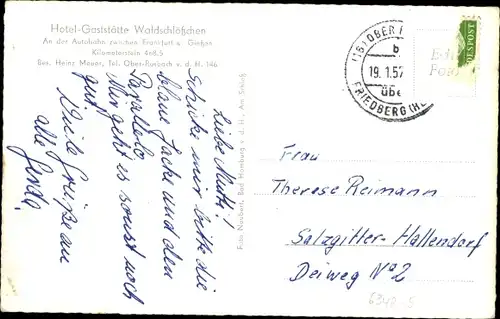 Hotel-Gaststätte Waldschlößchen
An der Autobahn zwischen Frankfurt u. Gießen
Kilometerstein 468,5
Bes. Heinz Meuer, Tel. Ober-Rosbach v. d. H. 146
Foto Neubert, Bad Homburg v. d. H., Am Schloß
Liebe Mutti!
Schicke mir bitte die
blaue Jacke und den
Mir geht es sonst noch
gut!
Viele Grüße an
alle Gerda!
(16) OBER
b
19. 1. 57
FRIEDBERG (HE
Frau
Therese Reimann
Salzgitter-Hallendorf
Deiweg No 2